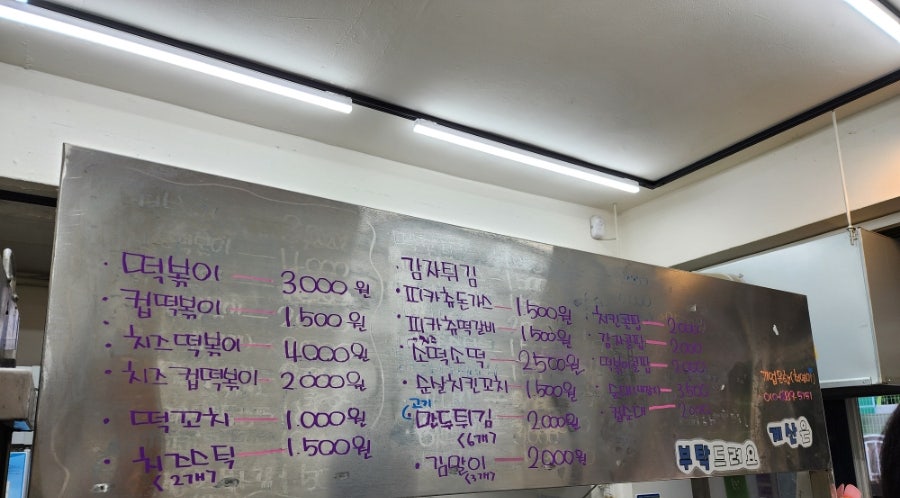 · 떡볶이 — 3.000원
· 컵떡볶이 — 1.500원
· 치즈떡볶이 — 4.000원
· 치즈 컵떡볶이 — 2000원
· 떡꼬치 — 1.000원
· 치즈스틱 — 1.500원
<2개>
· 감자튀김
· 피카츄돈가스 — 1.500원
· 피카츄떡갈비 — 1.500원
· 소떡소떡 — 2500원
· 순살치킨꼬치 1.500원
고기
만두튀김 — 2.000원
<6개>
· 김말이 — 2000원
<3개>
· 치킨콜팝 — 2.000
· 감자콜팝 — 2.000
· 떡볶이콜팝
계산은
부탁드려요